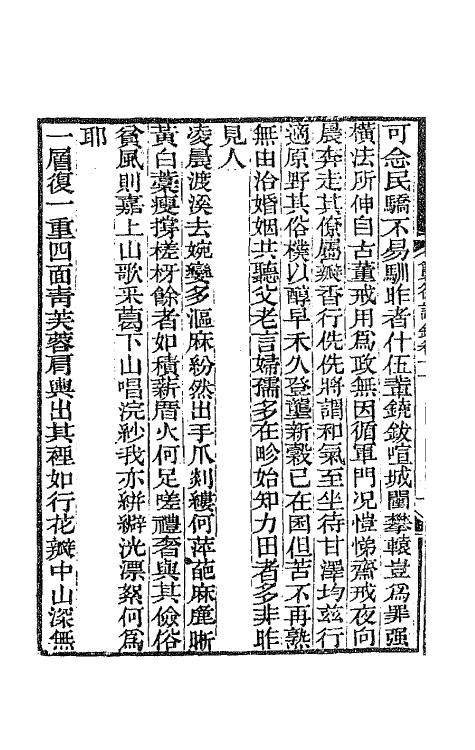 可念民驕不易馴昨者什伍譁鐃鈸喧城闉攀轅豈為罪强
橫法所伸自古董戒用為政無因循軍門况愷悌齋戒夜向
晨奔走其僚屬瓣香行侁侁將謂和氣至坐待甘澤均兹行
適原野其俗樸以醇早禾久登壟新穀已在囷但苦不再熟
無由洽婚姻共聽父老言婦孺多在畛始知力田者多非昨
見人
凌晨渡溪去婉孌多漚麻紛然出手爪剡縷何萍葩麻麈晰
黃白藁瘦撐槎枒餘者如積薪厝火何足嗟禮奢與其儉俗
貧風則嘉上山歌采葛下山唱浣紗我亦絣澼洸漂爇何為
耶
一層復一重四面靑芙蓉肩輿出其裡如行花瓣中山深無